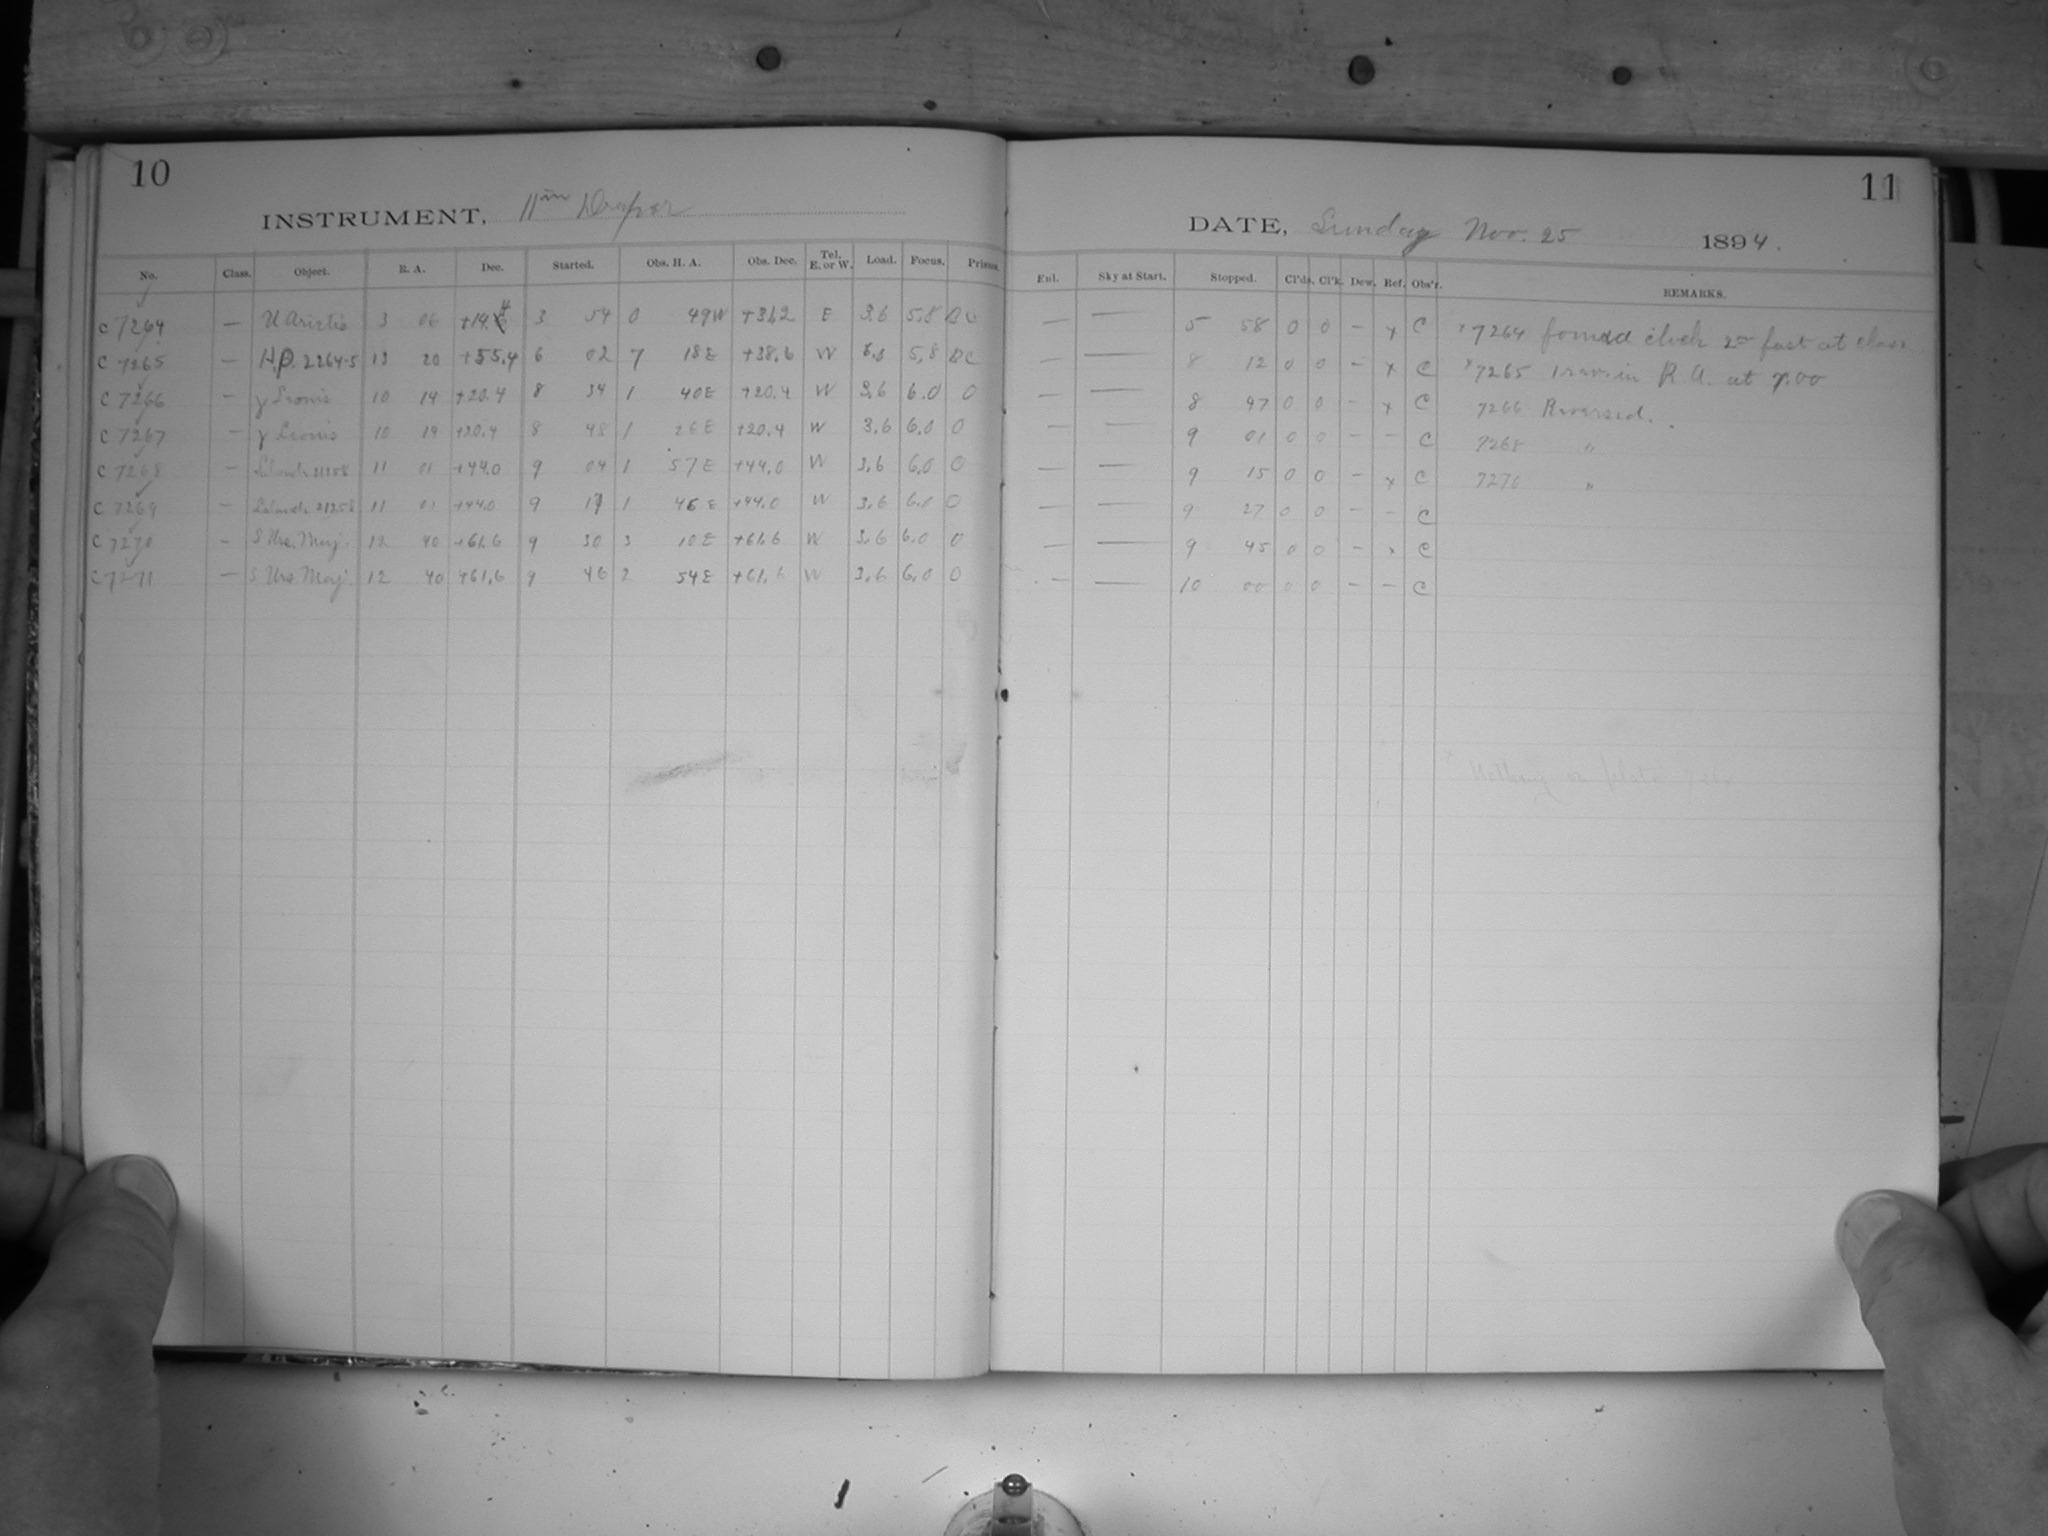 10
INSTRUMENT, 11in Draper
No. Class. Object. R. A. Dec. Started. Obs. H. A. Obs. Dec. Tel. E. or W. Load. Focus. Prisms.
C 7264 — U Arietis 3 06 +14.4 3 54 0 49 W +31.2 E 3.6 5.8
C 7265 — H.P. 2264-5 13 20 +55.4 6 02 7 18 E +38.6 W 3.6 5,8
C 7266 — γ Leonis 10 14 +20.4 8 34 1 40 E +20.4 W 3.6 6.0 0
C 7267 — γ Leonis 10 14 +20.4 8 48 1 26 E +20.4 W 3.6 6.0 0
C 7268 — Lalande 21258 11 01 +44.0 9 04 1 57 E +44.0 W 3.6 6.0 0
C 7269 — Lalande 21258 11 01 +44.0 9 17 1 45 E +44.0 W 3.6 6.0 0
C 7270 — S Urs. Maj. 12 40 +61.6 9 30 3 10 E +61.6 W 3.6 6.0 0
C 7271 — S Urs. Maj. 12 40 +61.6 9 46 2 54 E +61.6 W 3.6 6.0 0
11
DATE, Sunday Nov. 25 1894.
Enl. Sky at Start. Stopped. Cl'ds. Cl'k. Dew. Ref. Obs'r. REMARKS.
— — 5 58 0 0 — x C x 7264 found clock 2m fast at close
— — 8 12 0 0 — x C x 7265 1 rev. in R. A. at 7.00
— — 8 47 0 0 — x C 7266 Reversed.
— — 9 01 0 0 — — C 7268 "
— — 9 15 0 0 — x C 7270 "
— — 9 27 0 0 — — C
— — 9 45 0 0 — x C
— — 10 00 0 0 — — C
Nothing on plate